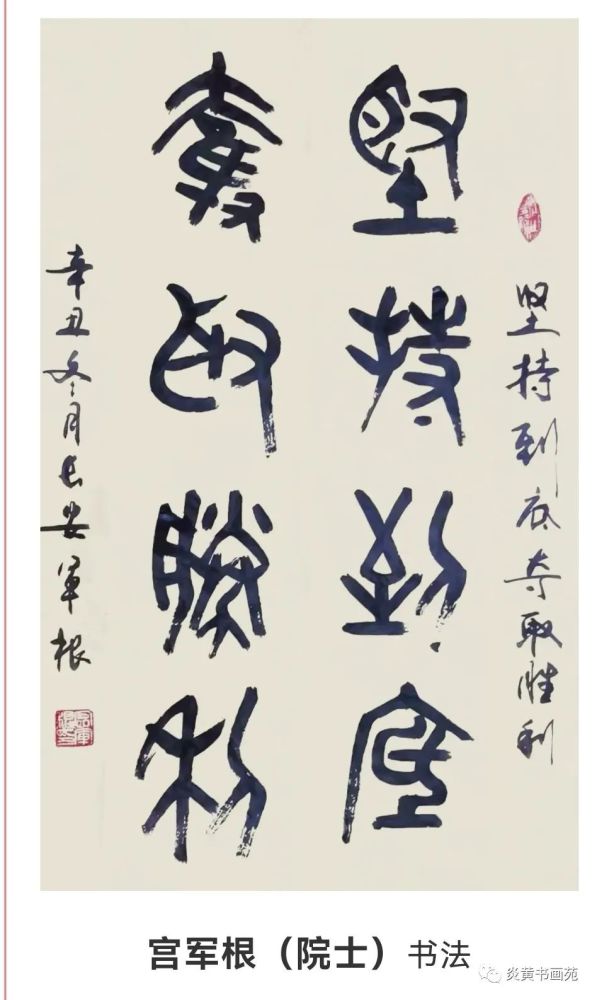 坚持到底夺取胜利
堅持到底
奪取勝利
辛丑冬月长安军根
宫军根（院士）书法
炎黄书画苑